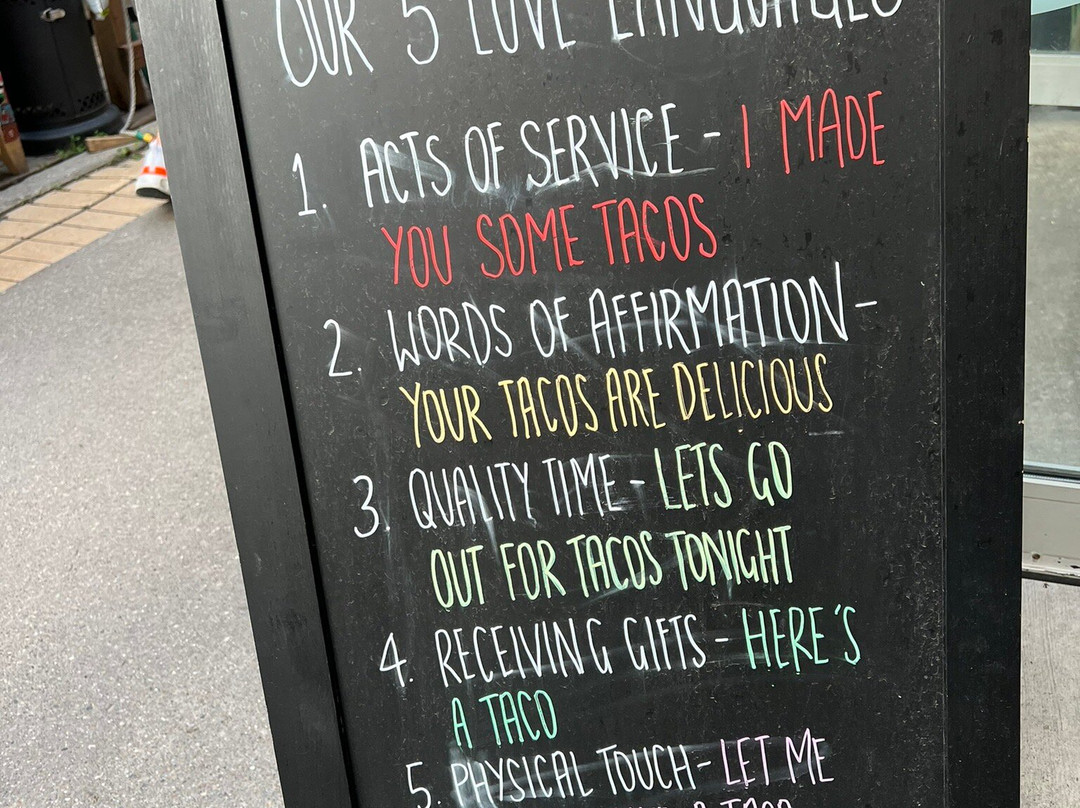 OUR 5 LOVE LANGUAGES
1. ACTS OF SERVICE - I MADE
YOU SOME TACOS
2. WORDS OF AFFIRMATION -
YOUR TACOS ARE DELICIOUS
3. QUALITY TIME - LETS GO
OUT FOR TACOS TONIGHT
4. RECEIVING GIFTS - HERE'S
A TACO
5. PHYSICAL TOUCH - LET ME
A TACO